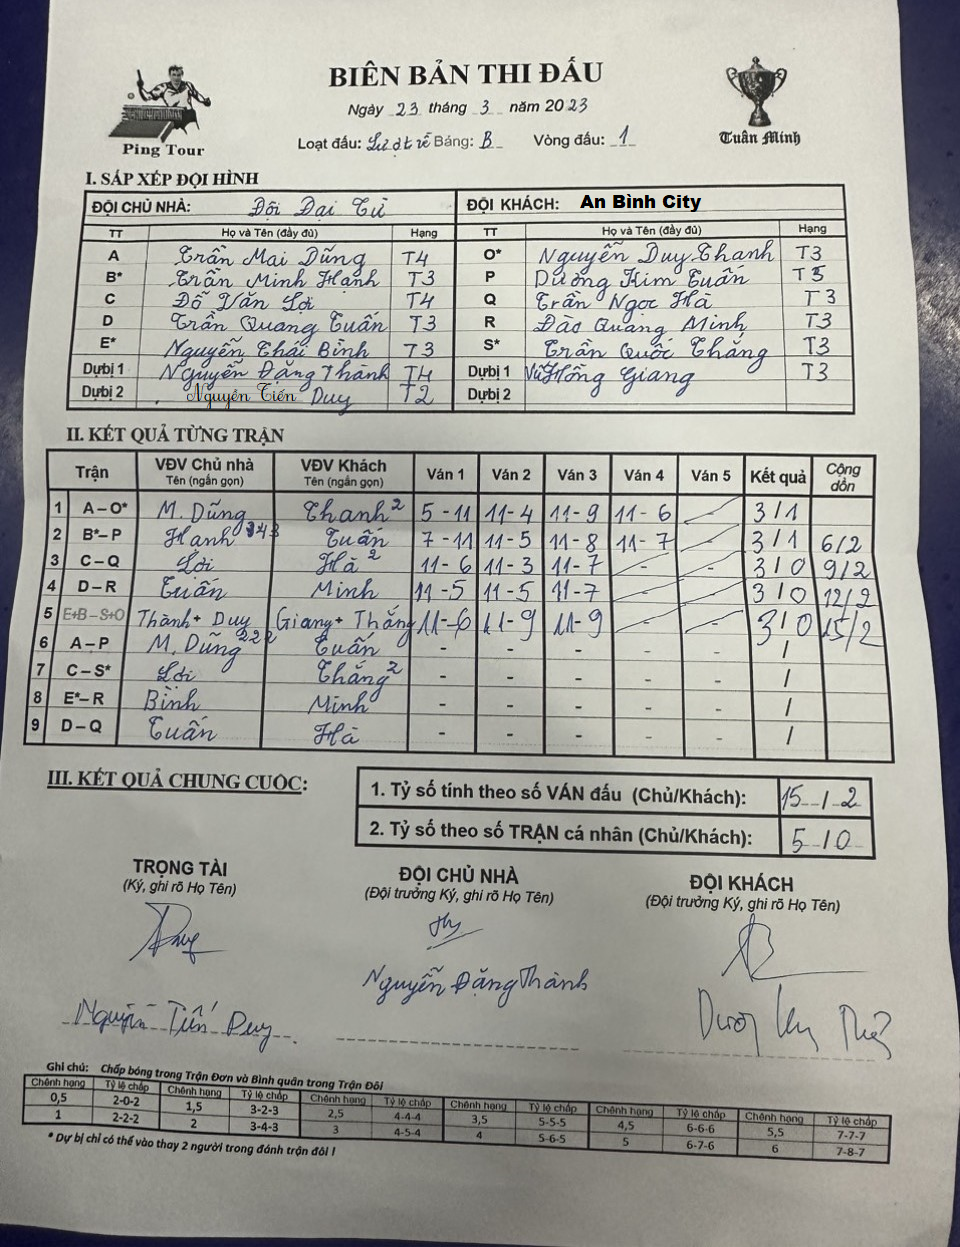 BIÊN BẢN THI ĐẤU
Ngày 23 tháng 3 năm 2023
Loạt đấu: Lượt về Bảng: B Vòng đấu: 1
Ping Tour
Tuân Minh
I. SẮP XẾP ĐỘI HÌNH
ĐỘI CHỦ NHÀ: Đội Đại Từ ĐỘI KHÁCH: An Bình City
TT Họ và Tên (đầy đủ) Hạng TT Họ và Tên (đầy đủ) Hạng
A Trần Mai Dũng T4 O* Nguyễn Duy Thanh T3
B* Trần Minh Hạnh T3 P Dương Kim Tuấn T3
C Đỗ Văn Lợi T4 Q Trần Ngọc Hà T3
D Trần Quang Tuấn T3 R Đào Quang Minh T3
E* Nguyễn Thái Bình T3 S* Trần Quốc Thắng T3
Dự bị 1 Nguyễn Đặng Thành T4 Dự bị 1 Vũ Hồng Giang T3
Dự bị 2 Nguyễn Tiến Duy T2 Dự bị 2
II. KẾT QUẢ TỪNG TRẬN
Trận VĐV Chủ nhà Tên (ngắn gọn) VĐV Khách Tên (ngắn gọn) Ván 1 Ván 2 Ván 3 Ván 4 Ván 5 Kết quả Cộng dồn
1 A – O* M. Dũng Thanh 2 5 - 11 11 - 4 11 - 9 11 - 6 - 3 / 1
2 B* – P Hạnh 343 Tuấn 7 - 11 11 - 5 11 - 8 11 - 7 - 3 / 1 6/2
3 C – Q Lợi Hà 2 11 - 6 11 - 3 11 - 7 - - 3 / 0 9/2
4 D – R Tuấn Minh 11 - 5 11 - 5 11 - 7 - - 3 / 0 12/2
5 E+B – S+O Thành + Duy Giang + Thắng 11 - 6 11 - 9 11 - 9 - - 3 / 0 15/2
6 A – P M. Dũng 222 Tuấn - - - - - /
7 C – S* Lợi Thắng 2 - - - - - /
8 E* – R Bình Minh - - - - - /
9 D – Q Tuấn Hà - - - - - /
III. KẾT QUẢ CHUNG CUỘC:
1. Tỷ số tính theo số VÁN đấu (Chủ/Khách): 15 / 2
2. Tỷ số theo số TRẬN cá nhân (Chủ/Khách): 5 / 0
TRỌNG TÀI ĐỘI CHỦ NHÀ ĐỘI KHÁCH
(Ký, ghi rõ Họ Tên) (Đội trưởng Ký, ghi rõ Họ Tên) (Đội trưởng Ký, ghi rõ Họ Tên)
Nguyễn Tiến Duy Nguyễn Đặng Thành
Ghi chú: Chấp bóng trong Trận Đơn và Bình quân trong Trận Đôi
Chênh hạng Tỷ lệ chấp Chênh hạng Tỷ lệ chấp Chênh hạng Tỷ lệ chấp Chênh hạng Tỷ lệ chấp Chênh hạng Tỷ lệ chấp Chênh hạng Tỷ lệ chấp
0,5 2-0-2 1,5 3-2-3 2,5 4-4-4 3,5 5-5-5 4,5 6-6-6 5,5 7-7-7
1 2-2-2 2 3-4-3 3 4-5-4 4 5-6-5 5 6-7-6 6 7-8-7
* Dự bị chỉ có thể vào thay 2 người trong đánh trận đôi !